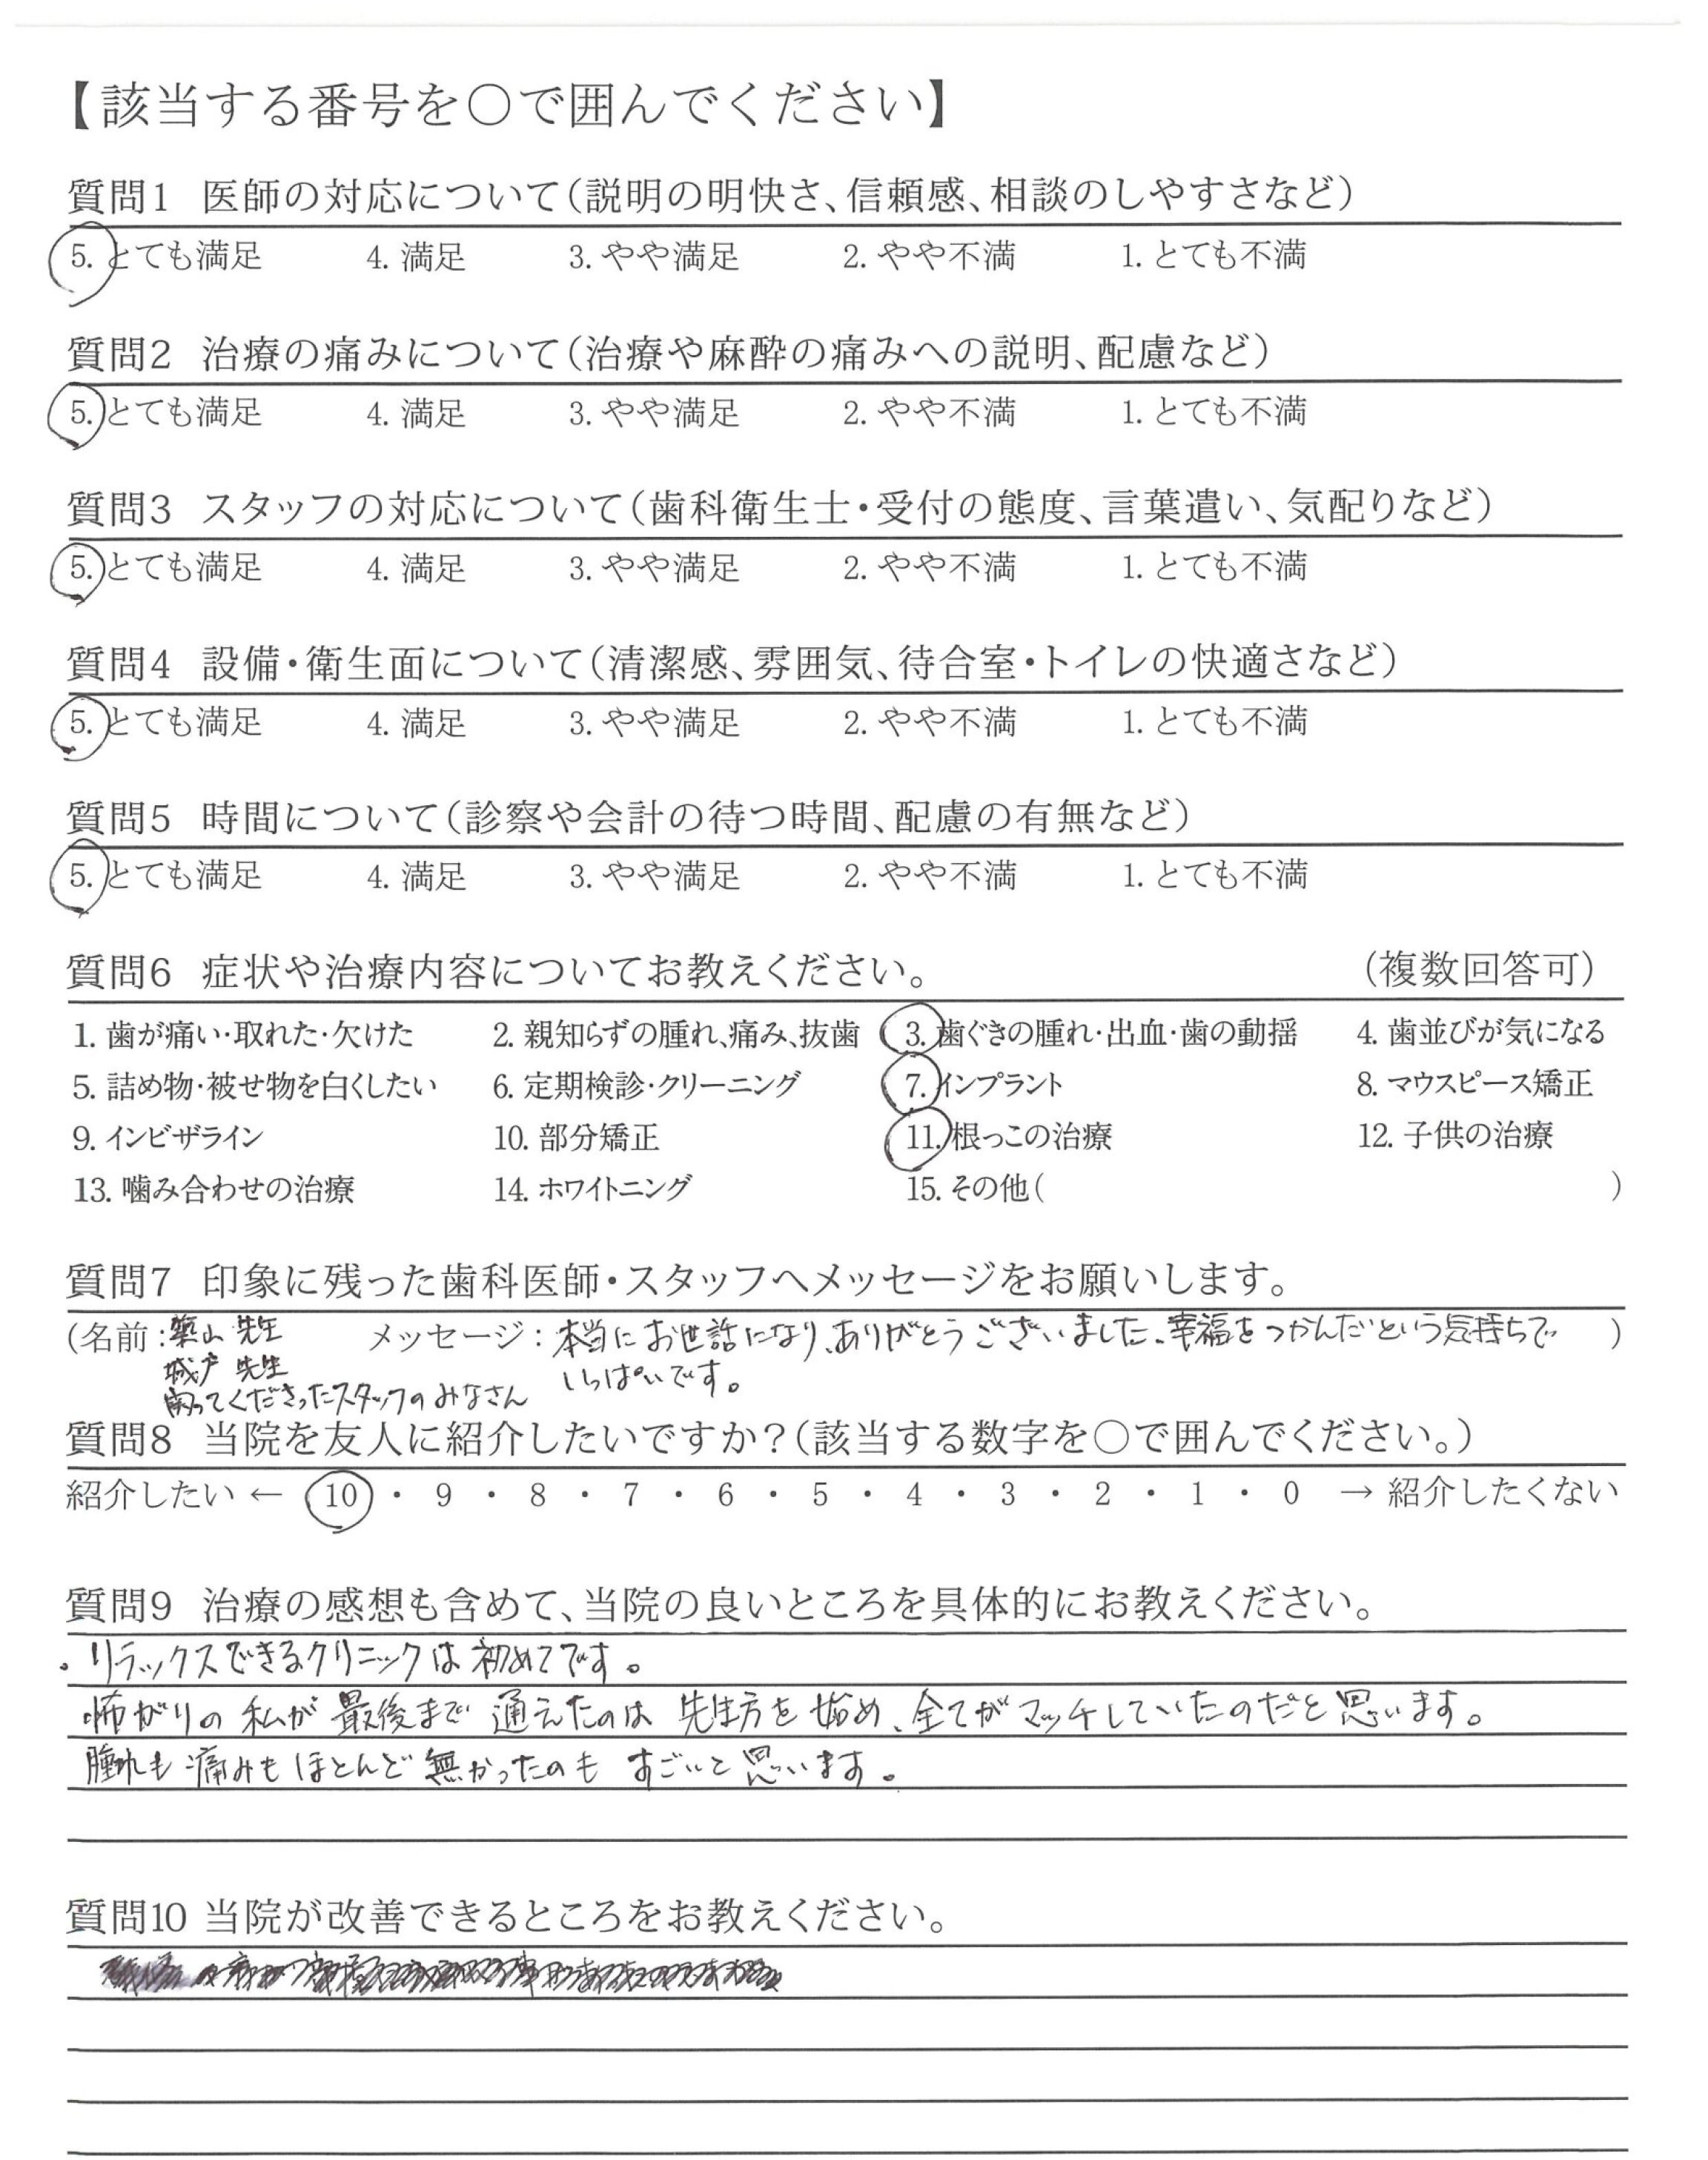 【該当する番号を○で囲んでください】
質問1 医師の対応について(説明の明快さ、信頼感、相談のしやすさなど)
5. とても満足 4. 満足 3. やや満足 2. やや不満 1. とても不満
質問2 治療の痛みについて(治療や麻酔の痛みへの説明、配慮など)
5. とても満足 4. 満足 3. やや満足 2. やや不満 1. とても不満
質問3 スタッフの対応について(歯科衛生士・受付の態度、言葉遣い、気配りなど)
5. とても満足 4. 満足 3. やや満足 2. やや不満 1. とても不満
質問4 設備・衛生面について(清潔感、雰囲気、待合室・トイレの快適さなど)
5. とても満足 4. 満足 3. やや満足 2. やや不満 1. とても不満
質問5 時間について(診察や会計の待つ時間、配慮の有無など)
5. とても満足 4. 満足 3. やや満足 2. やや不満 1. とても不満
質問6 症状や治療内容についてお教えください。 (複数回答可)
1. 歯が痛い・取れた・欠けた 2. 親知らずの腫れ、痛み、抜歯 3. 歯ぐきの腫れ・出血・歯の動揺 4. 歯並びが気になる
5. 詰め物・被せ物を白くしたい 6. 定期検診・クリーニング 7. インプラント 8. マウスピース矯正
9. インビザライン 10. 部分矯正 11. 根っこの治療 12. 子供の治療
13. 噛み合わせの治療 14. ホワイトニング 15. その他( )
質問7 印象に残った歯科医師・スタッフへメッセージをお願いします。
(名前:築山 先生 メッセージ:本当にお世話になり、ありがとうございました。幸福をつかんだという気持ちで )
城戸 先生 いっぱいです。
関ってくださったスタッフのみなさん
質問8 当院を友人に紹介したいですか?(該当する数字を○で囲んでください。)
紹介したい ← 10 ・ 9 ・ 8 ・ 7 ・ 6 ・ 5 ・ 4 ・ 3 ・ 2 ・ 1 ・ 0 → 紹介したくない
質問9 治療の感想も含めて、当院の良いところを具体的にお教えください。
・リラックスできるクリニックは初めてです。
怖がりの私が最後まで通えたのは先生方を始め、全てがマッチしていたのだと思います。
腫れも痛みもほとんど無かったのもすごいと思います。
質問10 当院が改善できるところをお教えください。